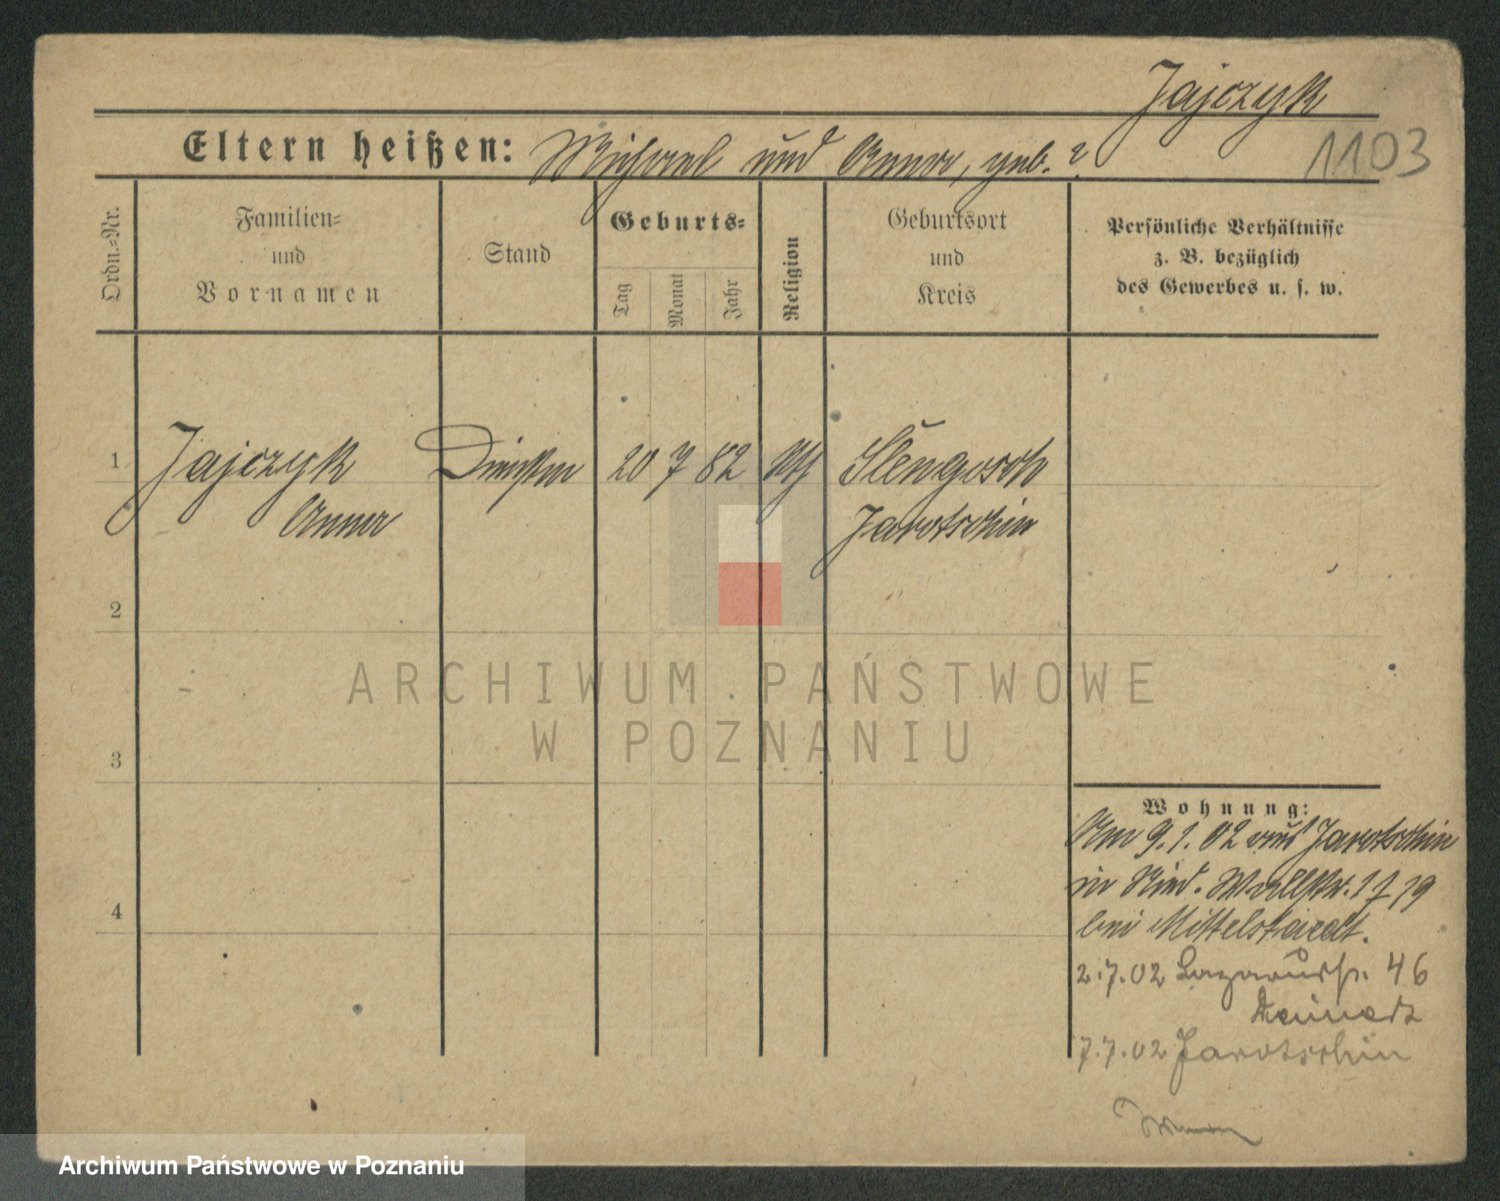 Jajczyk
1103
Eltern heißen: Michael und Anna, geb. ?
Ordn.=Nr.
Familien=
und
Vornamen
Stand
Geburts=
Tag
Monat
Jahr
Religion
Geburtsort
und
Kreis
Persönliche Verhältnisse
z. B. bezüglich
des Gewerbes u. s. w.
1
Jajczyk
Anna
20 7 82
Jarotschin
2
3
4
ARCHIWUM PAŃSTWOWE
W POZNANIU
Wohnung:
Am 9.1.02 aus Jarotschin
in
bei Mittelstaedt.
2.7.02 Lazarusstr. 46
7.7.02 Jarotschin
Archiwum Państwowe w Poznaniu